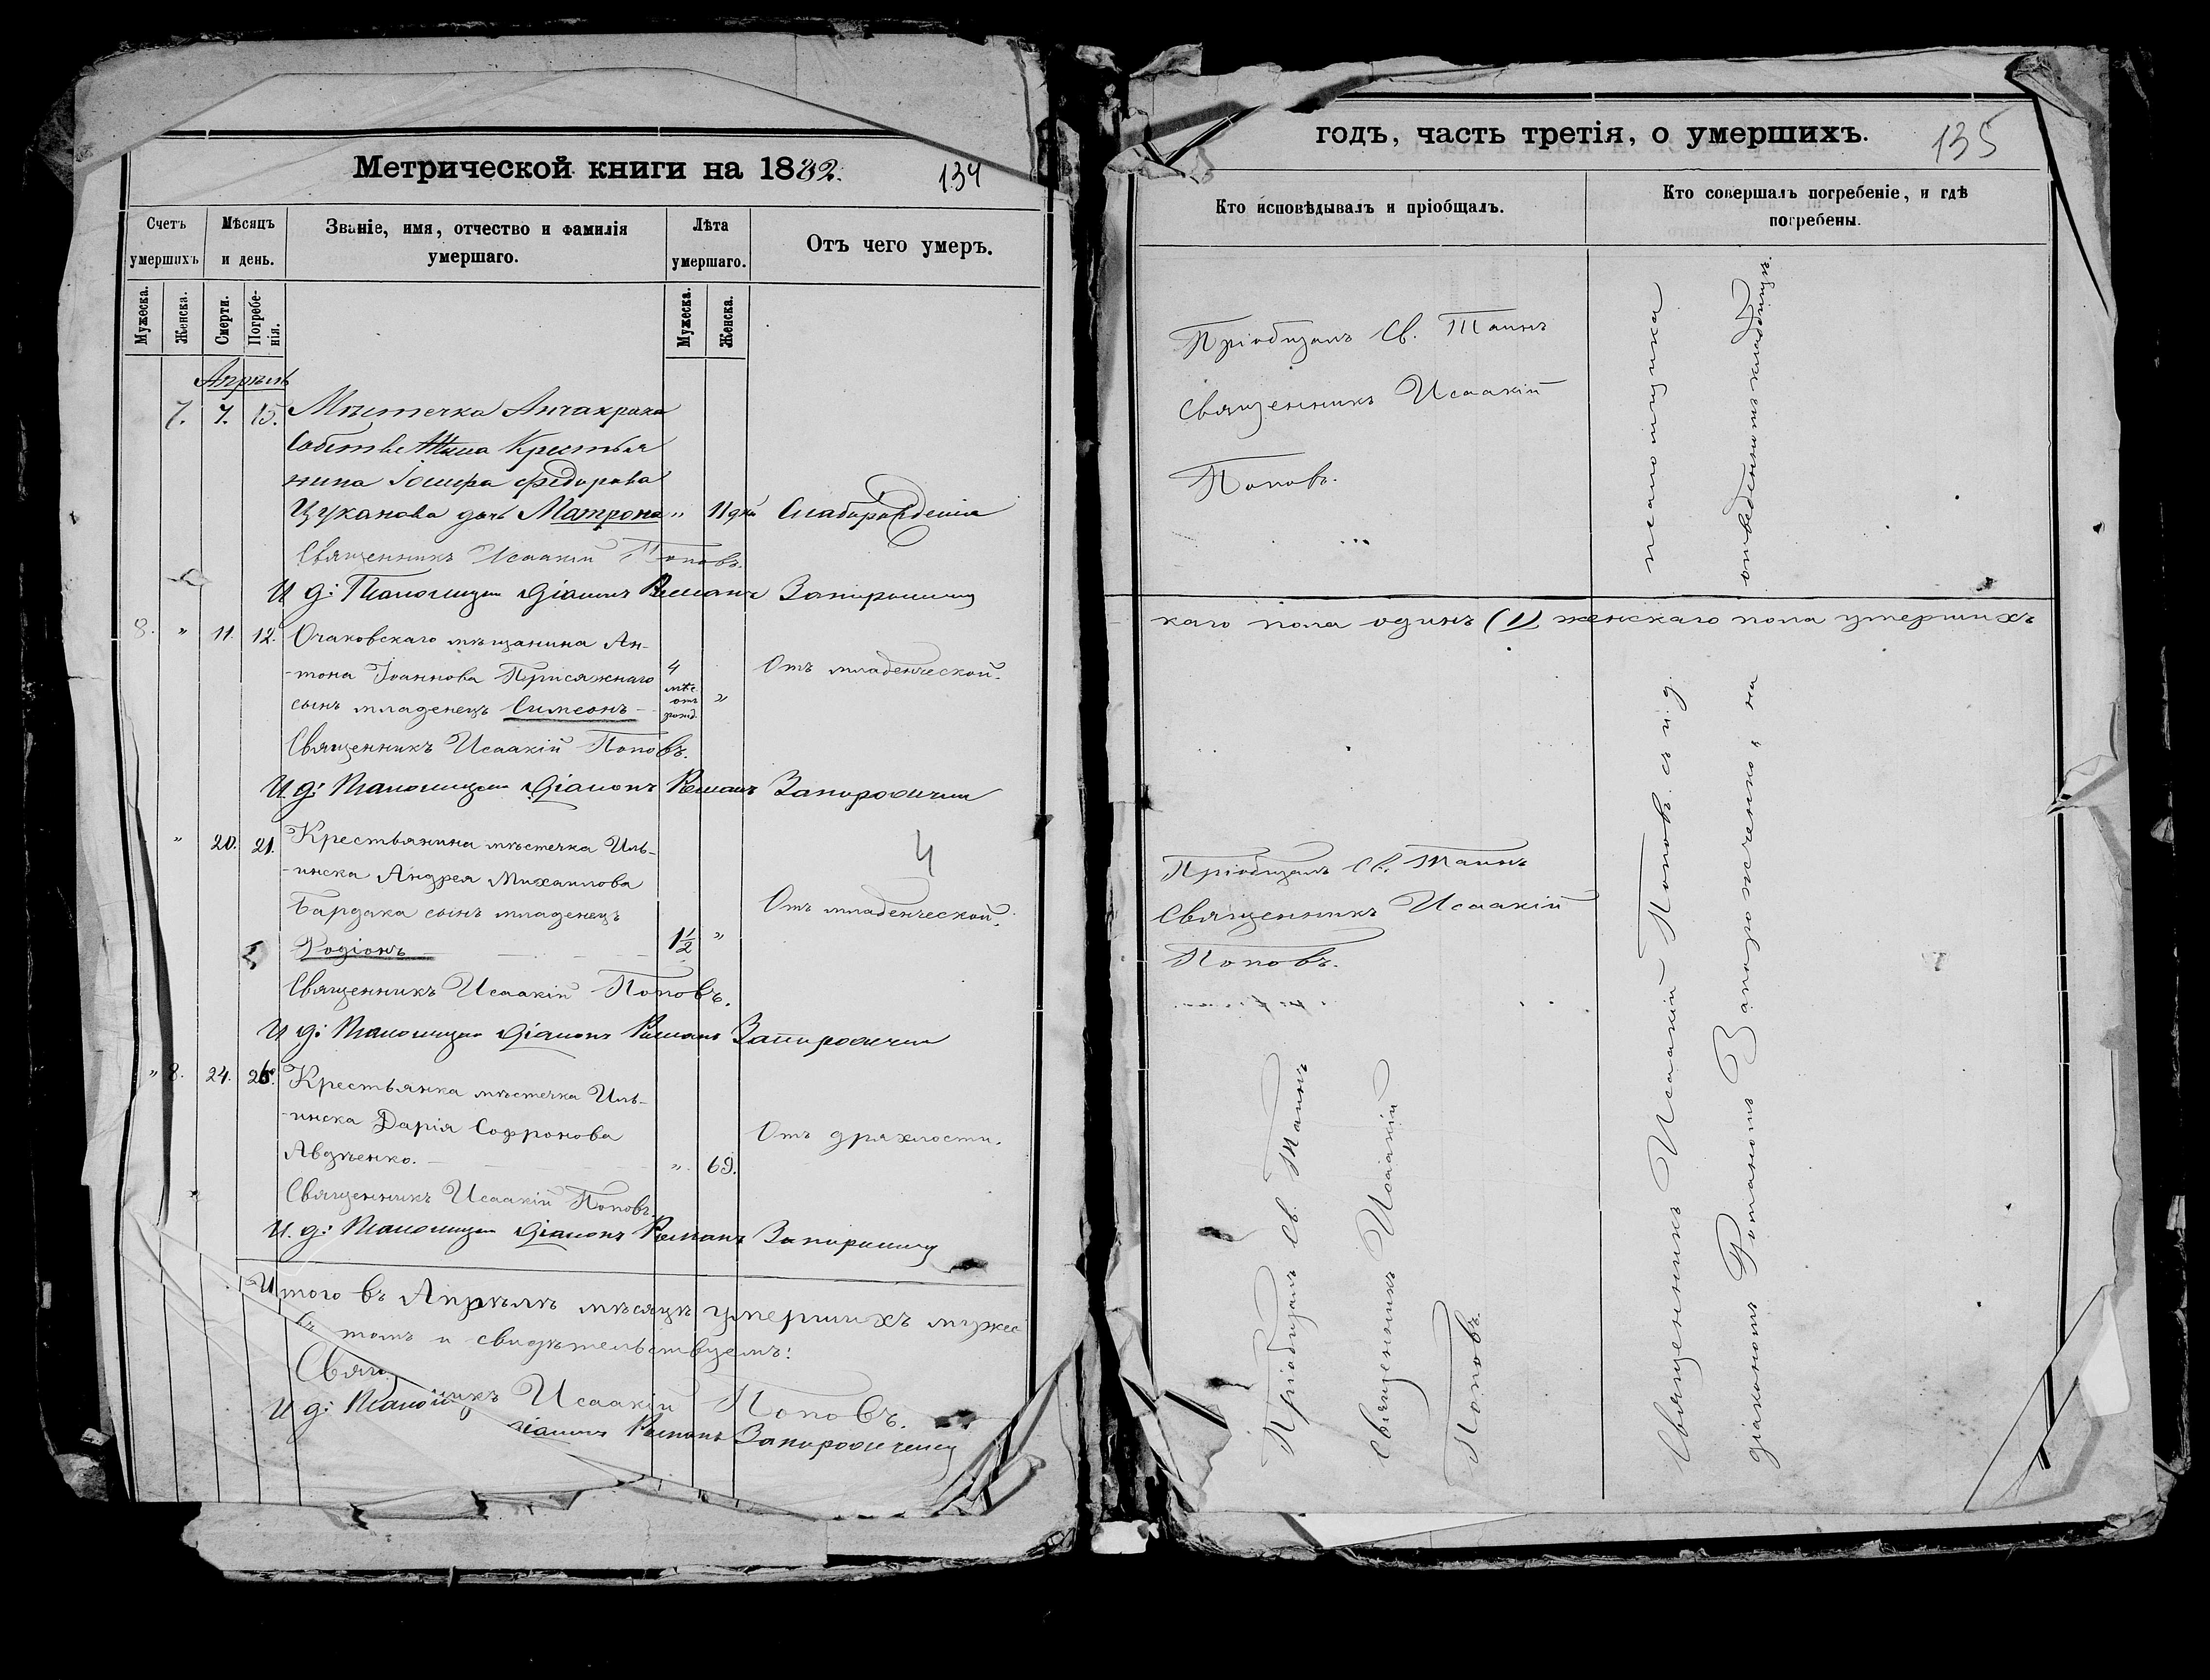 Метрической книги на 1882.
134
Счетъ умершихъ
Мѣсяцъ и день.
Званіе, имя, отчество и фамилія умершаго.
Лѣта умершаго.
Отъ чего умеръ.
Мужеска.
Женска.
Смерти.
Погребенія.
Мужеска.
Женска.
Апрѣль
7. 7. 15. Мѣстечка Анчакрака
Крестья
нина Іосифа Федорова
Цуканова дочь Матрона „ 11 дней Слаборожденія
Священникъ Исаакій Поповъ.
И. д: Псаломщика Діаконъ Романъ Запороженко
8. „ 11. 12. Очаковскаго мѣщанина Ан-
-тона Іоаннова Присяжнаго 4 Отъ младенческой.
сынъ младенецъ Симеонъ мѣс. отъ рожд. „
Священникъ Исаакій Поповъ.
И. д: Псаломщика Діаконъ Романъ Запороженко
„ 20. 21. Крестьянина мѣстечка Иль-
-инска Андрея Михаилова 4
Бардака сынъ младенецъ Отъ младенческой.
Родіонъ 1 1/2 „
Священникъ Исаакій Поповъ.
И. д: Псаломщика Діаконъ Романъ Запороженко
„ 8. 24. 26. Крестьянка мѣстечка Иль-
-инска Дарія Софронова Отъ дряхлости.
Авдѣенко. „ 69.
Священникъ Исаакій Поповъ.
И. д: Псаломщика Діаконъ Романъ Запороженко
Итого въ Апрѣлѣ мѣсяцѣ умершихъ мужес
въ томъ и свидѣтельствуемъ:
Свящ
никъ Исаакій Поповъ.
И. д: Псалом
діаконъ Романъ Запороженко
годъ, часть третія, о умершихъ.
135
Кто исповѣдывалъ и пріобщалъ.
Кто совершалъ погребеніе, и гдѣ погребены.
Пріобщалъ Св. Таинъ
Священникъ Исаакій
Поповъ.
псаломщика
отведенномъ кладбищѣ.
каго пола одинъ (1) женскаго пола умершихъ
Пріобщалъ Св. Таинъ
Священникъ Исаакій
Поповъ.
Пріобщалъ Св. Таинъ
Священникъ Исаакій
Поповъ.
Священникъ Исаакій Поповъ. съ и. д.
діакономъ Романомъ Запороженко, на